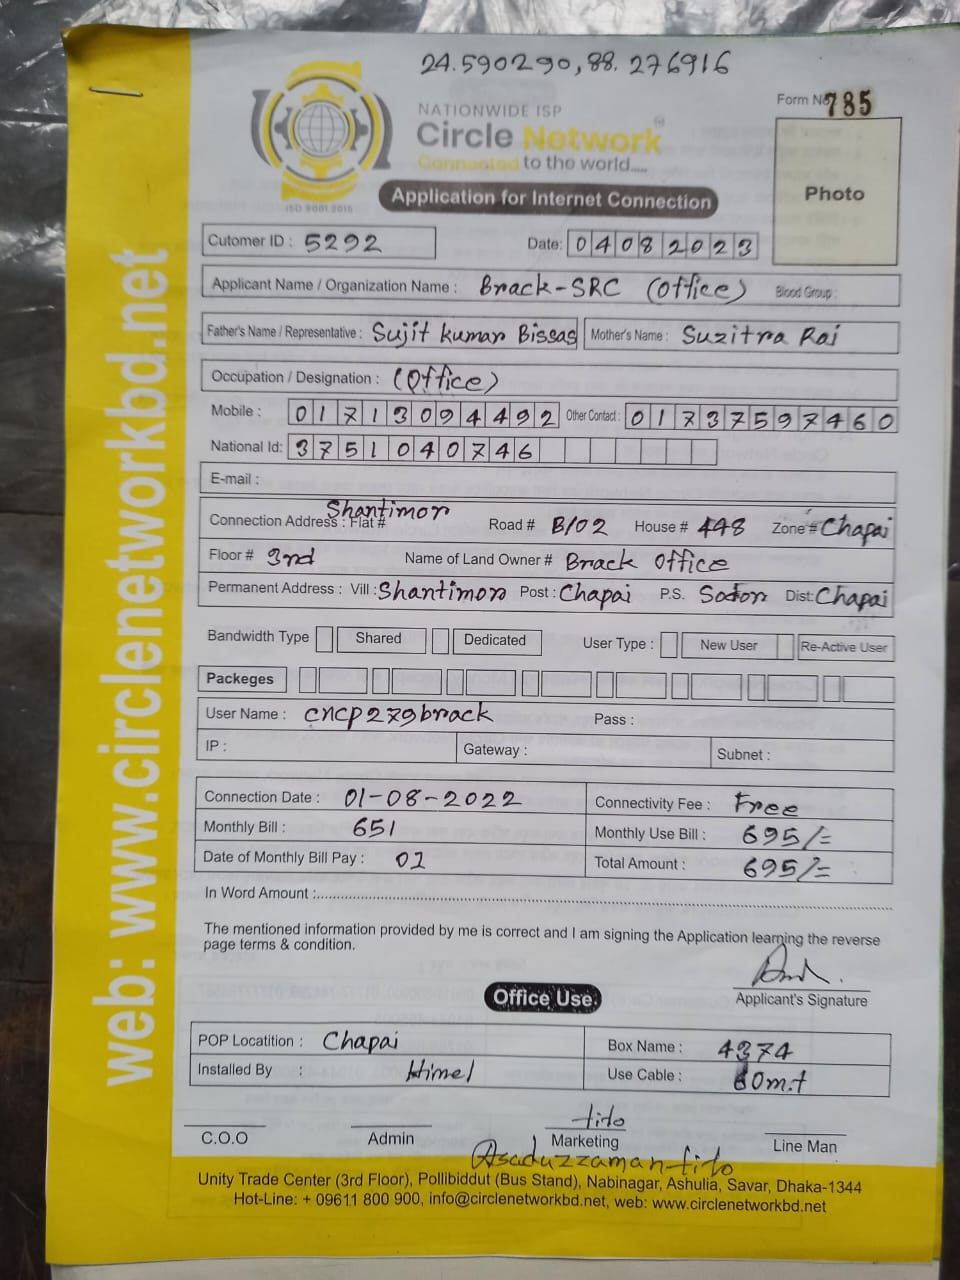 24.590290, 88.276916
NATIONWIDE ISP
Circle Network
Connected to the world.....
ISO 9001:2015
Form No 785
Photo
Application for Internet Connection
Cutomer ID : 5292 Date: 04082023
Applicant Name / Organization Name : Brack-SRC (Office) Blood Group :
Father's Name / Representative : Sujit kumar Bissas Mother's Name : Suzitra Rai
Occupation / Designation : (Office)
Mobile : 01713094492 Other Contact : 01737597460
National Id: 3751040746
E-mail :
Connection Address : Flat # Shantimor Road # B/02 House # 448 Zone # Chapai
Floor # 3rd Name of Land Owner # Brack Office
Permanent Address : Vill : Shantimor Post : Chapai P.S. Sodor Dist: Chapai
Bandwidth Type Shared Dedicated User Type : New User Re-Active User
Packeges
User Name : cncp279brack Pass :
IP : Gateway : Subnet :
Connection Date : 01-08-2022 Connectivity Fee : Free
Monthly Bill : 651 Monthly Use Bill : 695/=
Date of Monthly Bill Pay : 01 Total Amount : 695/=
In Word Amount :
The mentioned information provided by me is correct and I am signing the Application learning the reverse
page terms & condition.
Applicant's Signature
Office Use
POP Locatition : Chapai Box Name : 4374
Installed By : Himel Use Cable : 60m.t
tito
C.O.O Admin Marketing Line Man
Asaduzzaman-tito
Unity Trade Center (3rd Floor), Pollibiddut (Bus Stand), Nabinagar, Ashulia, Savar, Dhaka-1344
Hot-Line: + 09611 800 900, info@circlenetworkbd.net, web: www.circlenetworkbd.net
web: www.circlenetworkbd.net